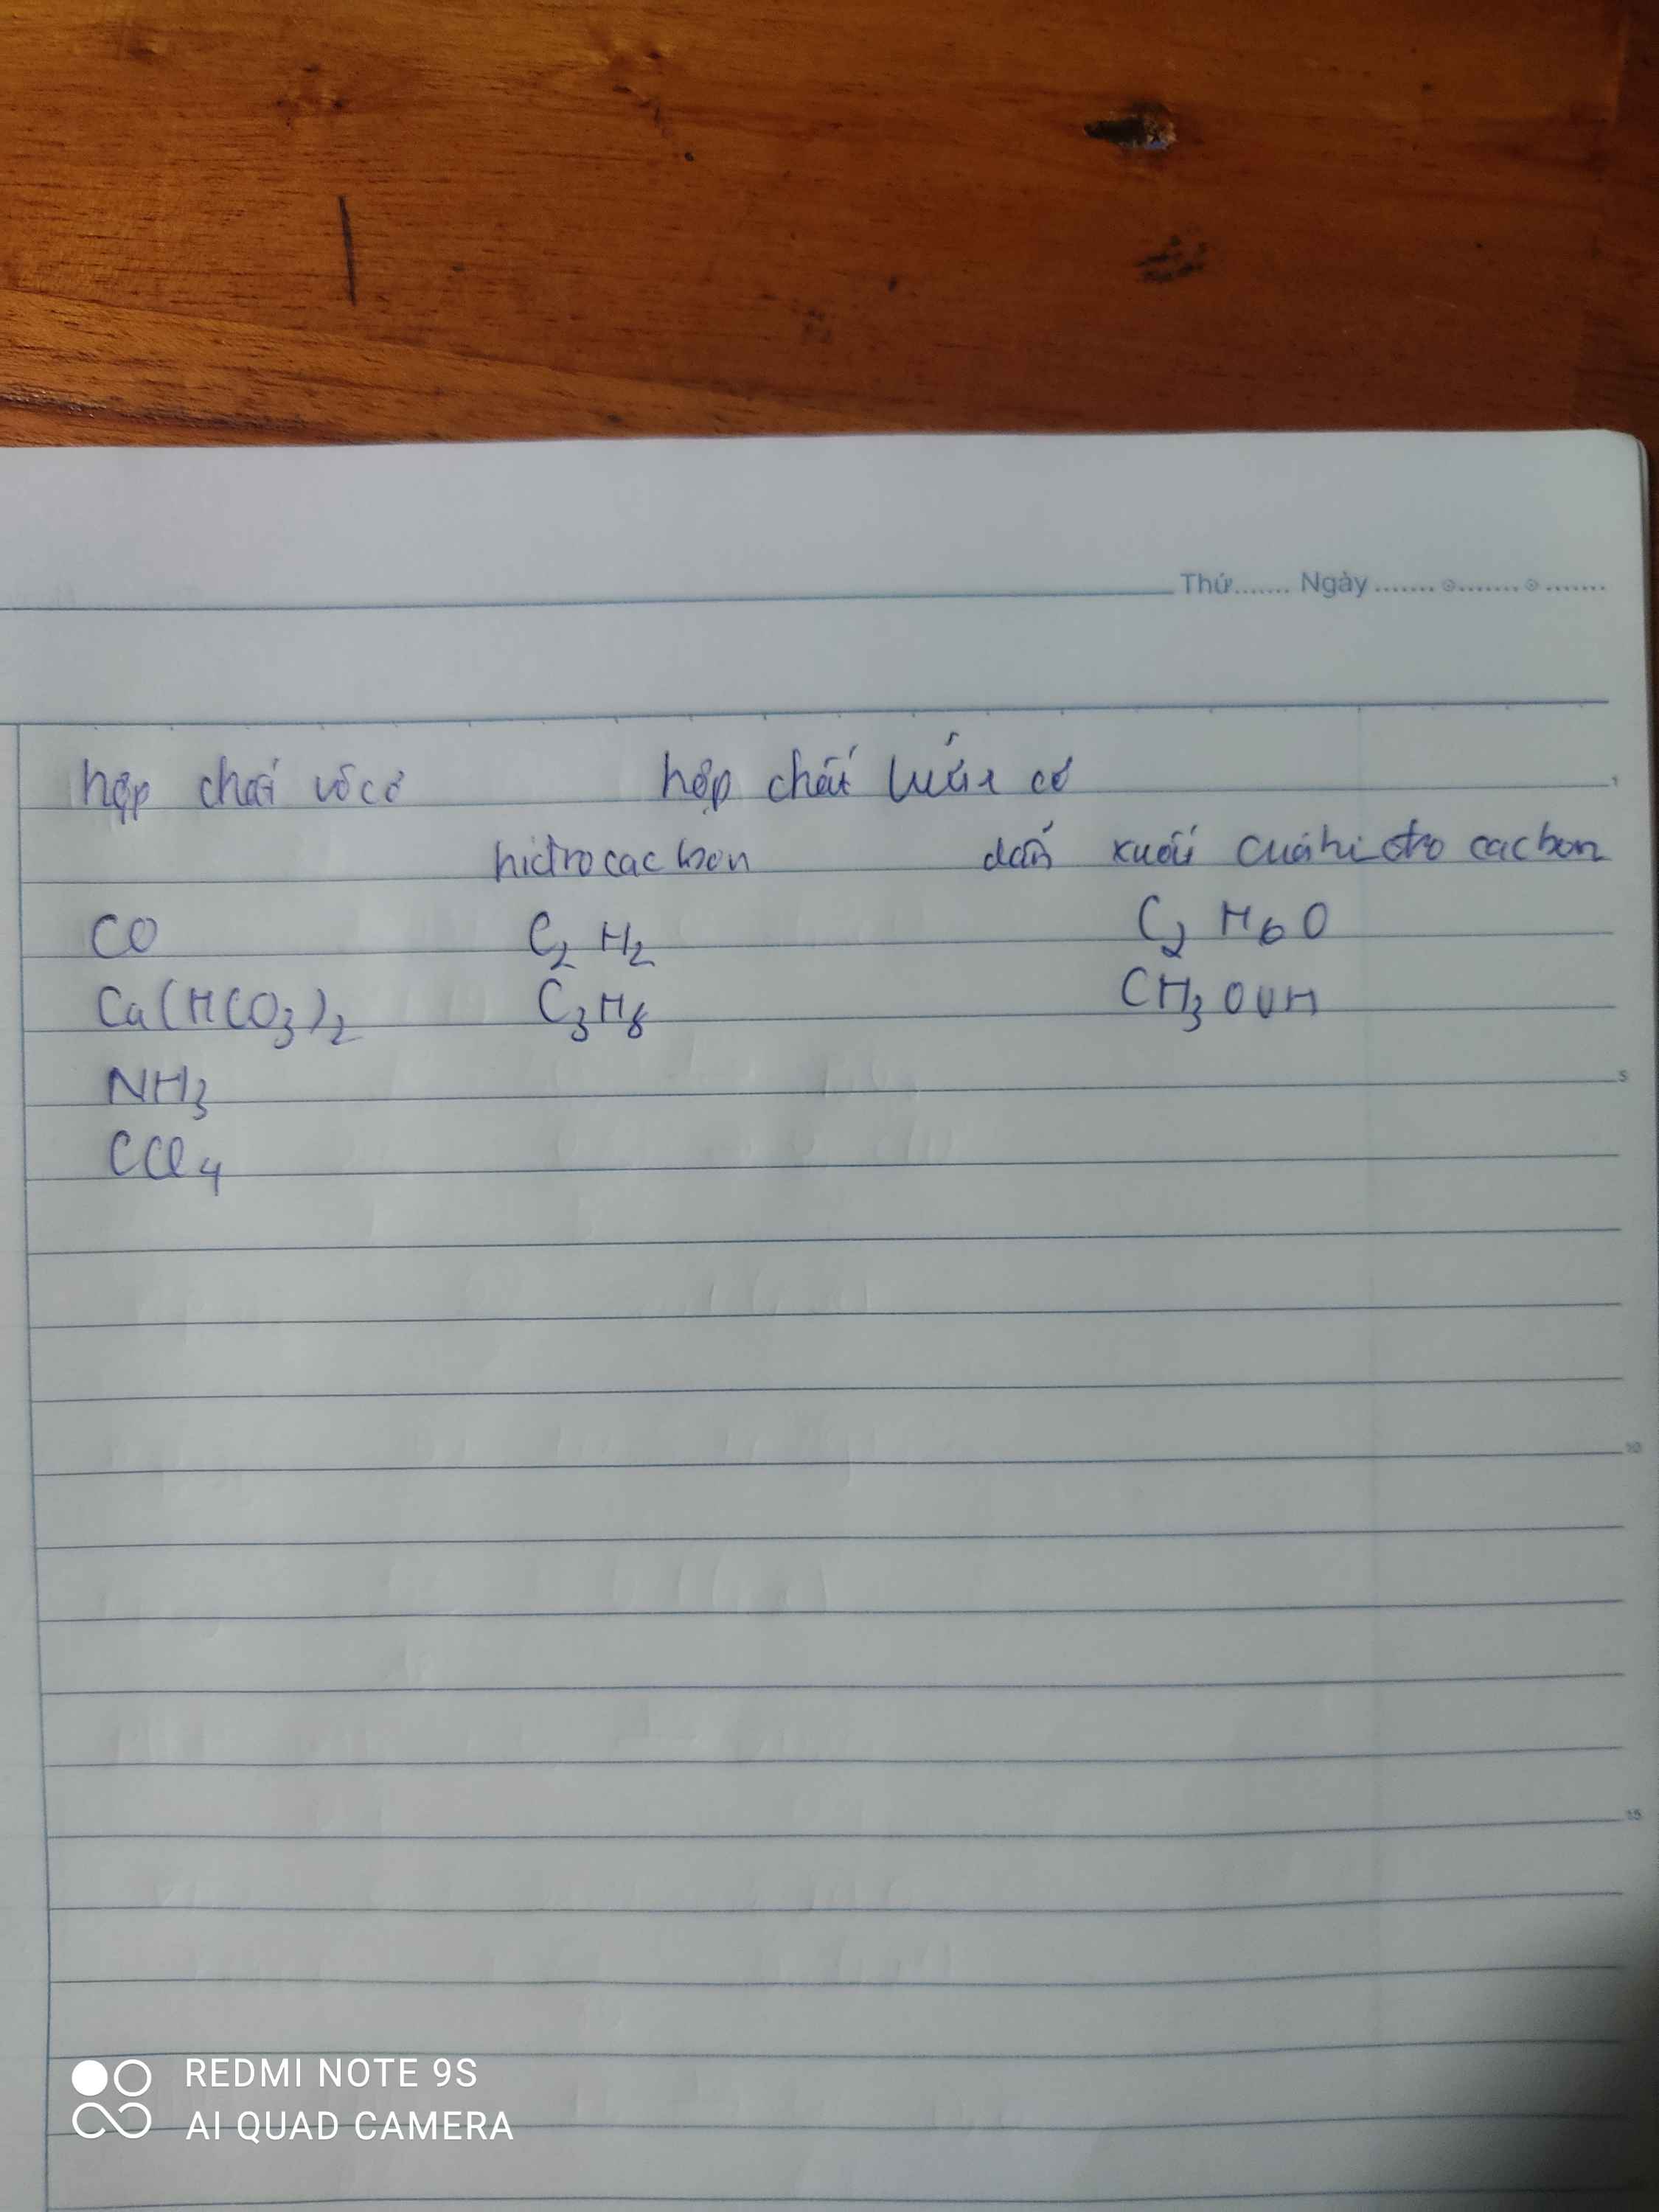 Thứ....... Ngày........⊙.......⊙.......
hợp chất vô cơ hợp chất hữu cơ
hiđrocacbon dẫn xuất của hiđrocacbon
CO C2H2 C2H6O
Ca(HCO3)2 C3H8 CH3OOH
NH3
CCl4
1
5
10
15
REDMI NOTE 9S
AI QUAD CAMERA